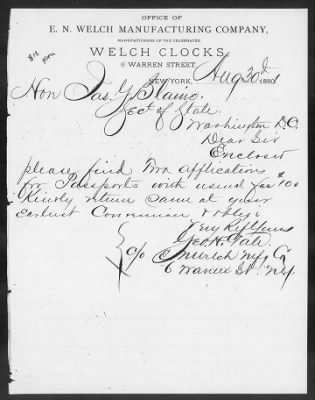 OFFICE OF
E. N. WELCH MANUFACTURING COMPANY,
MANUFACTURERS OF THE CELEBRATED
WELCH CLOCKS,
6 WARREN STREET,
NEW YORK, Aug 30 1881
Hon Jas. G. Blaine.
Sect of State.
Washington D.C.
Dear Sir
Enclosed
please find two applications
for Passports with usual fee $10
Kindly return same at your
earliest
Very
Geo. H.
c/o Welch Mfg Co
6 Warren St. N.Y.